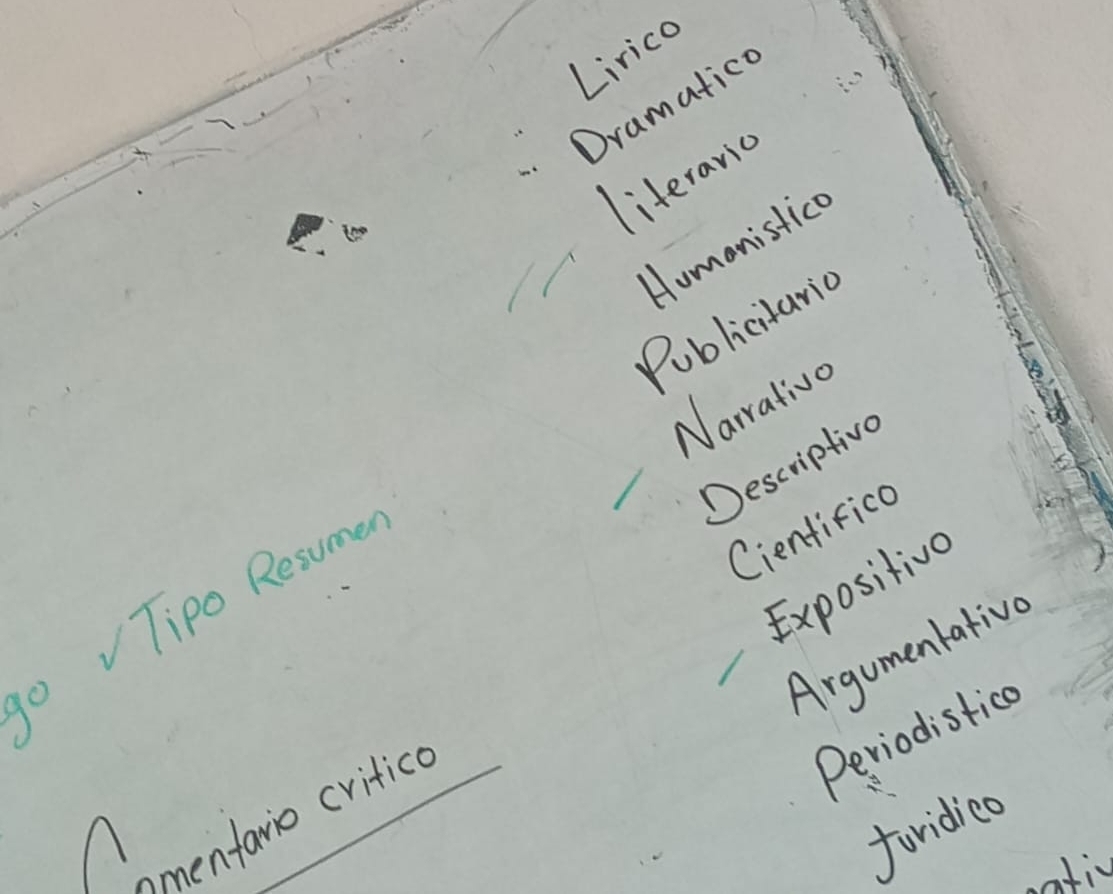 Lirico
Dramatico
literario
Humanistico
Publicitario
Narrativo
Descriptivo
Cientifico
Expositivo
Argumentativo
Periodistico
Juridico
✓Tipo Resumen
Comentario critico